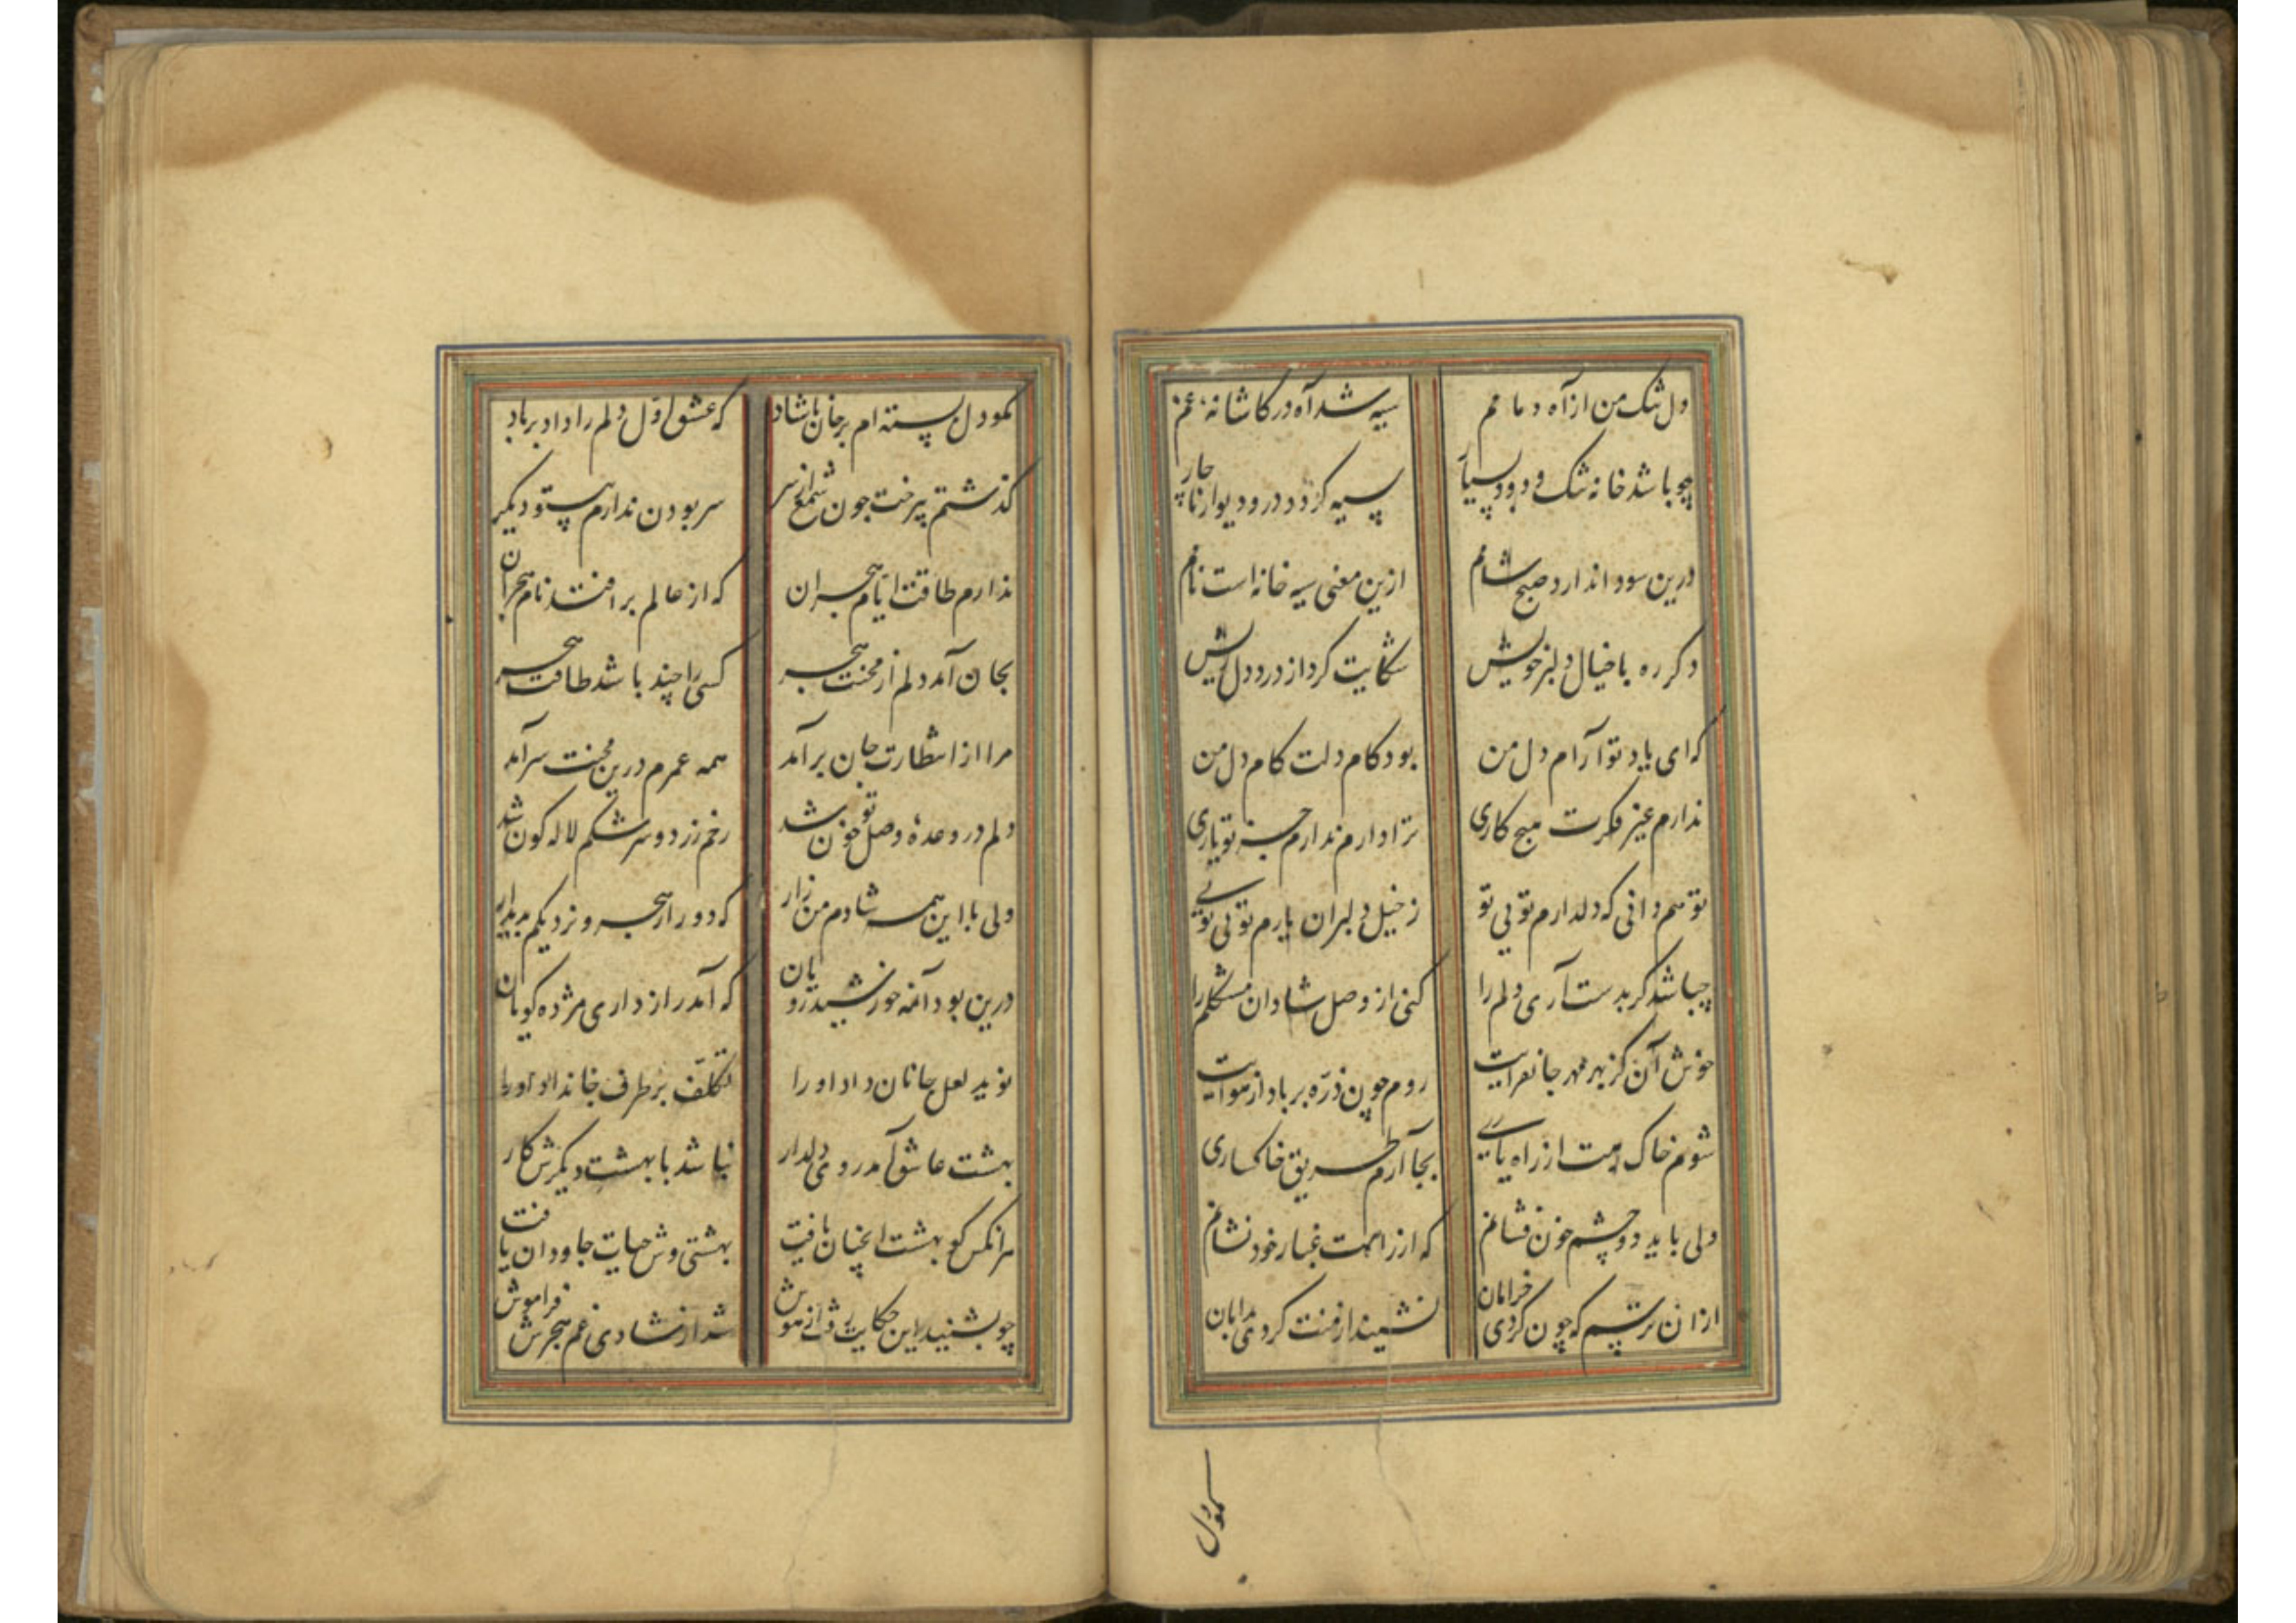 دل تنک من از آه دمادم سیه شد آه در کاشانه غم
چو باشد خانه تنک و دود بسیار سیه کردد در و دیوار ناچار
درین سودا ندارد صبح شامم ازین معنی سیه خانه است نامم
دکر ره با خیال دلبر خویش شکایت کرد از درد دل ریش
که ای یاد تو آرام دل من بود کام دلت کام دل من
ندارم غیر فکرت هیچ کاری ترا دارم ندارم جز تو یاری
تو هم دانی که دلدارم تویی تو ز خیل دلبران یارم تویی تویی
چباشد کر بدست آری دلم را کنی از وصل شادان مشکلم را
خوش آن کز بهر مهر جانفزایت روم چون ذره بر باد از هوایت
شوم خاک رهت از راه یاری بجا آرم طریق خاکساری
ولی باید دو چشم خون فشانم که از راهت غبار خود نشانم
از ان ترسم که چون کردی خرامان نشیند از منت کردی بدامان
کمودل
کمو دل بسته ام بر جان ناشاد که عشق اول دلم را داد بر باد
کذشتم پیرخت چون شمع از سر سر بودن ندارم بیتو دیکر
ندارم طاقت ایام هجران که از عالم بر افتد نام هجران
بجان آمد دلم از محنت هجر کسی را چند باشد طاقت هجر
مرا از انتظارت جان بر آمد همه عمرم درین محنت سر آمد
دلم در وعده وصل تو خون شد رخم زرد و سرشکم لاله کون شد
ولی با این همه شادم من زار که دور از هجر و نزدیکم بدیدار
درین بود آنمه خورشید رویان که آمد راز داری مژده کویان
نوید لعل جانان داد او را تکلف بر طرف جانداد او را
بهشت عاشق آمد روی دلدار نباشد با بهشت دیکرش کار
هر انکس کو بهشت اینچنان یافت بهشتی وش حیات جاودان یافت
چو بشنید این حکایت رفت از هوش شد از شادی غم هجرش فراموش